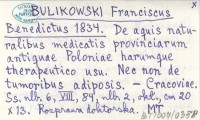 BULIKOWSKI Franciscus
Benedictus 1834. De aquis natu-
ralibus medicatis provinciarum
antiquae Poloniae harumque
therapeutico usu. Nec non de
tumoribus adiposis. - Cracoviae.
Ss. nlb 6, VIII, 84, nlb 2, cm 20
x 13. Rozprawa doktorska. MT